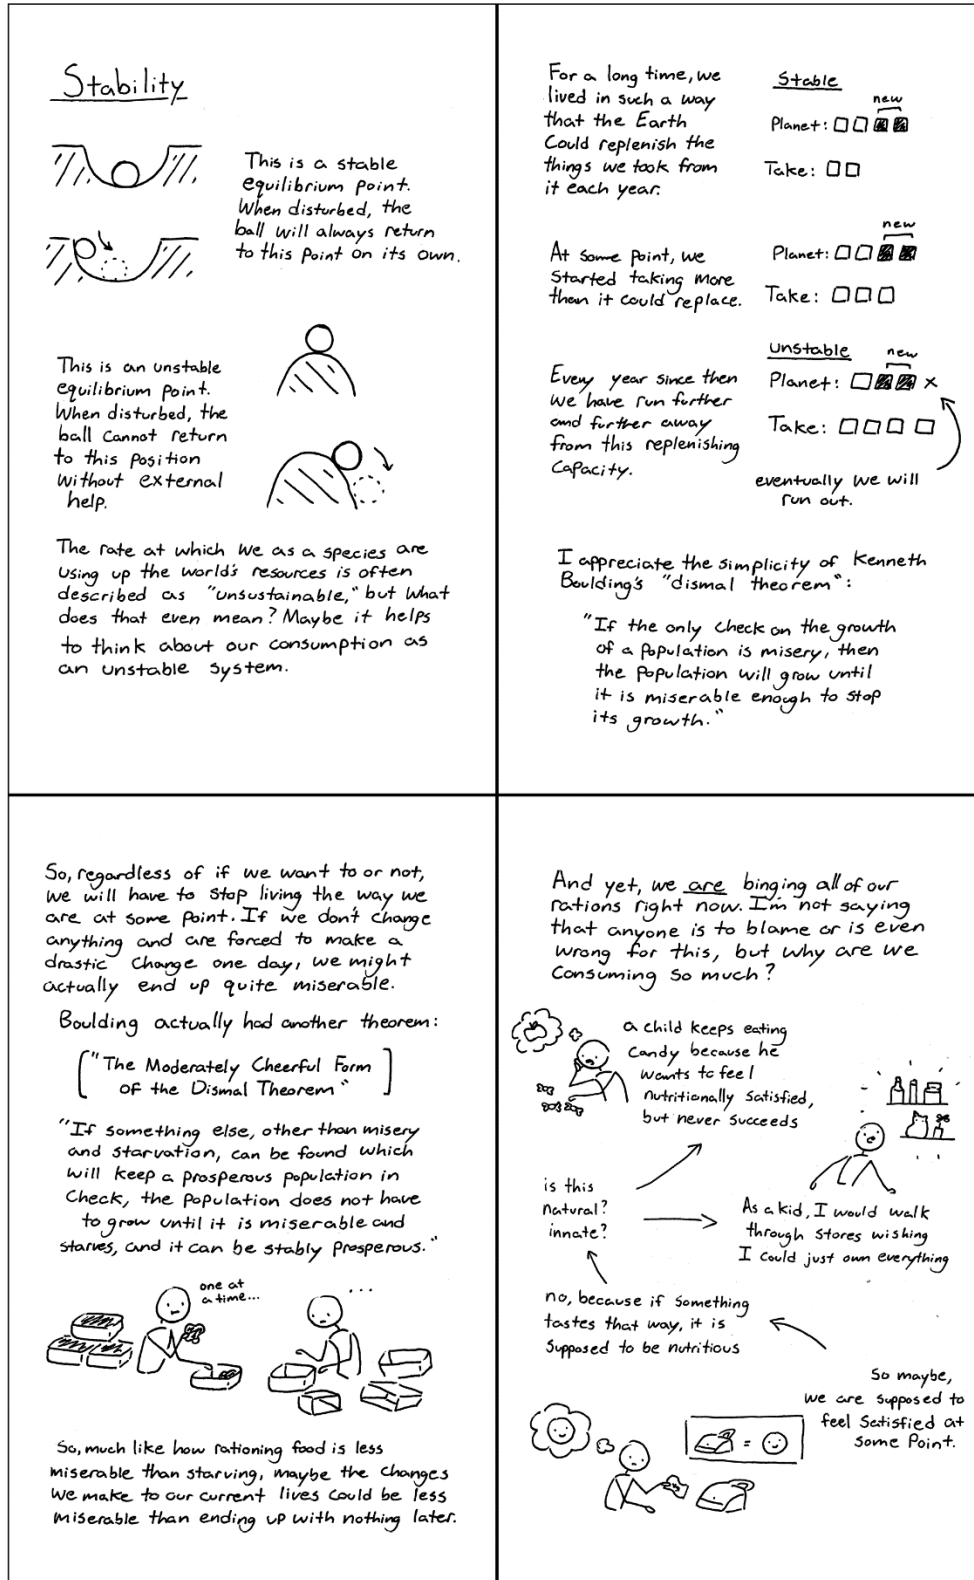 Stability
This is a stable
equilibrium point.
When disturbed, the
ball will always return
to this point on its own.
This is an unstable
equilibrium point.
When disturbed, the
ball cannot return
to this position
without external
help.
The rate at which we as a species are
using up the world's resources is often
described as "unsustainable," but what
does that even mean? Maybe it helps
to think about our consumption as
an unstable system.
For a long time, we
lived in such a way
that the Earth
could replenish the
things we took from
it each year.
Stable
new
Planet:
Take:
At some point, we
started taking more
than it could replace.
new
Planet:
Take:
Every year since then
we have run further
and further away
from this replenishing
capacity.
Unstable
new
Planet: x
Take:
eventually we will
run out.
I appreciate the simplicity of Kenneth
Boulding's "dismal theorem":
"If the only check on the growth
of a population is misery, then
the population will grow until
it is miserable enough to stop
its growth."
So, regardless of if we want to or not,
we will have to stop living the way we
are at some point. If we don't change
anything and are forced to make a
drastic change one day, we might
actually end up quite miserable.
Boulding actually had another theorem:
["The Moderately Cheerful Form
of the Dismal Theorem"]
"If something else, other than misery
and starvation, can be found which
will keep a prosperous population in
check, the population does not have
to grow until it is miserable and
starves, and it can be stably prosperous."
one at
a time...
...
So, much like how rationing food is less
miserable than starving, maybe the changes
we make to our current lives could be less
miserable than ending up with nothing later.
And yet, we are binging all of our
rations right now. I'm not saying
that anyone is to blame or is even
wrong for this, but why are we
consuming so much?
a child keeps eating
candy because he
wants to feel
nutritionally satisfied,
but never succeeds
is this
natural?
innate?
As a kid, I would walk
through stores wishing
I could just own everything
no, because if something
tastes that way, it is
supposed to be nutritious
So maybe,
we are supposed to
feel satisfied at
some point.
=